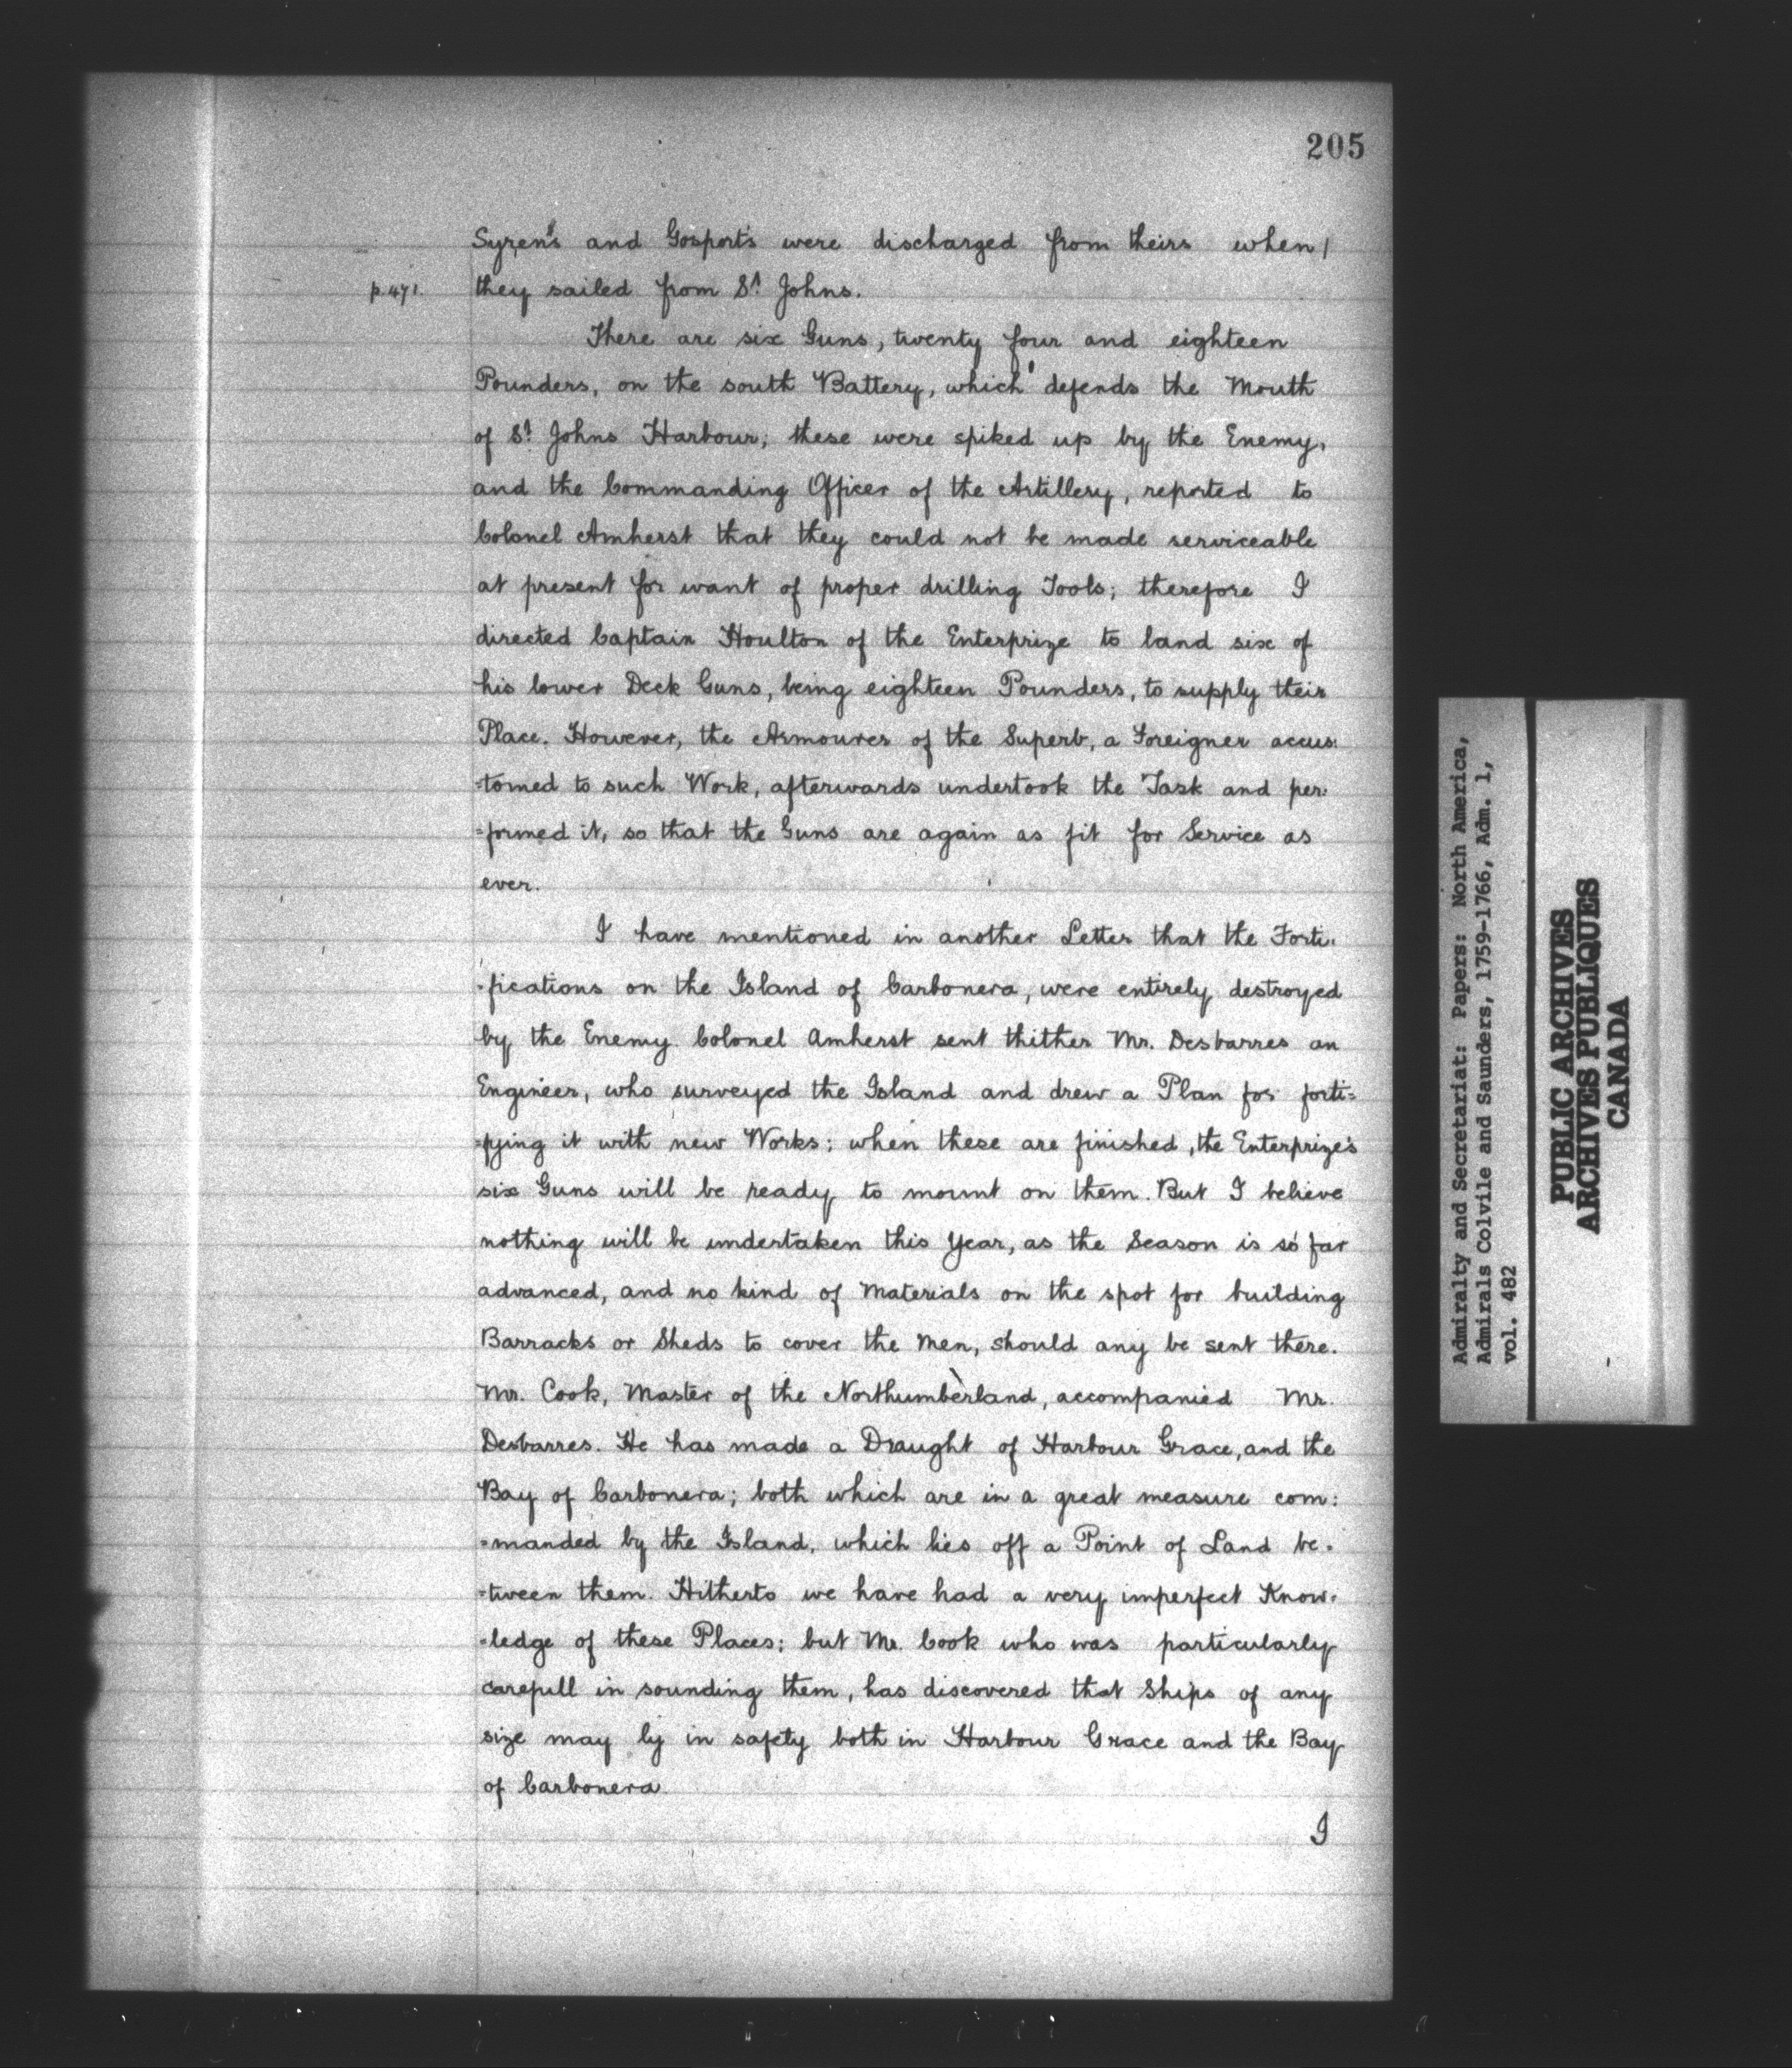 205
Syren's and Gosport's were discharged from theirs when /
p. 471. they sailed from St. Johns.
There are six Guns, twenty four and eighteen
Pounders, on the south Battery, which defends the Mouth
of St. Johns Harbour; these were spiked up by the Enemy,
and the Commanding Officer of the Artillery, reported to
Colonel Amherst that they could not be made serviceable
at present for want of proper drilling Tools; therefore I
directed Captain Houlton of the Enterprize to land six of
his lower Deck Guns, being eighteen Pounders, to supply their
Place. However, the Armourer of the Superb, a Foreigner accus:
=tomed to such Work, afterwards undertook the Task and per:
=formed it, so that the Guns are again as fit for Service as
ever.
I have mentioned in another Letter that the Forti:
=fications on the Island of Carbonera, were entirely destroyed
by the Enemy. Colonel Amherst sent thither Mr. Desbarres an
Engineer, who surveyed the Island and drew a Plan for forti=
=fying it with new Works; when these are finished, the Enterprize's
six Guns will be ready to mount on them. But I believe
nothing will be undertaken this Year, as the Season is so far
advanced, and no kind of Materials on the spot for building
Barracks or Sheds to cover the Men, should any be sent there.
Mr. Cook, Master of the Northumberland, accompanied Mr.
Desbarres. He has made a Draught of Harbour Grace, and the
Bay of Carbonera; both which are in a great measure com:
=manded by the Island, which lies off a Point of Land be:
=tween them. Hitherto we have had a very imperfect Know:
=ledge of these Places; but Mr. Cook who was particularly
carefull in sounding them, has discovered that Ships of any
size may ly in safety both in Harbour Grace and the Bay
of Carbonera.
I
Admiralty and Secretariat: Papers: North America,
Admirals Colvile and Saunders, 1759-1766, Adm. 1,
vol. 482
PUBLIC ARCHIVES
ARCHIVES PUBLIQUES
CANADA